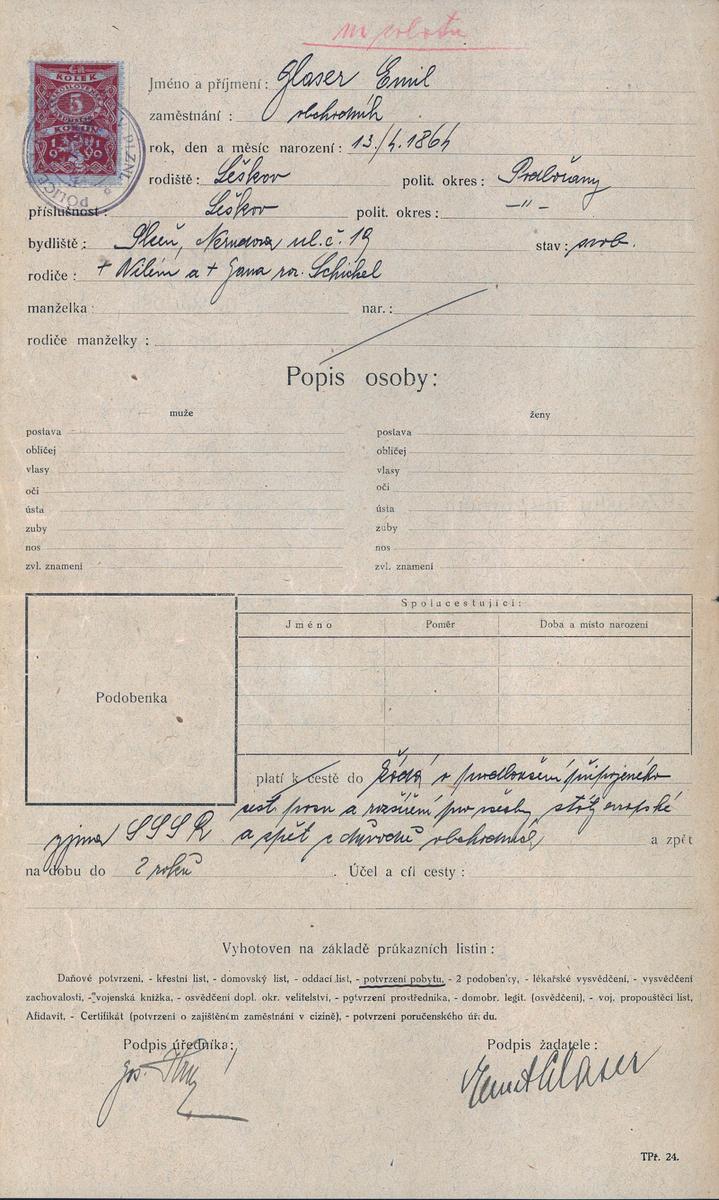 KOLEK
5
KORUN
Jméno a příjmení: Glaser Emil
zaměstnání: obchodník
rok, den a měsíc narození: 13./4.1864
rodiště: Leškov polit. okres: Podbořany
příslušnost: Leškov polit. okres: -"-
bydliště: Plzeň, Nerudova ul. č. 19 stav: svob.
rodiče: + Vilém a + Jana roz. Schickel
manželka: nar.:
rodiče manželky:
Popis osoby:
muže ženy
postava postava
obličej obličej
vlasy vlasy
oči oči
ústa ústa
zuby zuby
nos nos
zvl. znamení zvl. znamení
Spolucestující:
Jméno Poměr Doba a místo narození
Podobenka
platí k cestě do žádá o prodloužení připojeného
cest. pasu a rozšíření pro všechny státy evropské
vyjma SSSR a zpět z důvodů obchodních a zpět
na dobu do 2 roků. Účel a cíl cesty:
Vyhotoven na základě průkazních listin:
Daňové potvrzení, - křestní list, - domovský list, - oddací list, - potvrzení pobytu, - 2 podobenky, - lékařské vysvědčení, - vysvědčení
zachovalosti, - vojenská knížka, - osvědčení dopl. okr. velitelství, - potvrzení prostředníka, - domobr. legit. (osvědčení), - voj. propouštěcí list,
Afidavit, - Certifikát (potvrzení o zajištěném zaměstnání v cizině), - potvrzení poručenského úřadu.
Podpis úředníka: Podpis žadatele:
Emil Glaser
TPř. 24.